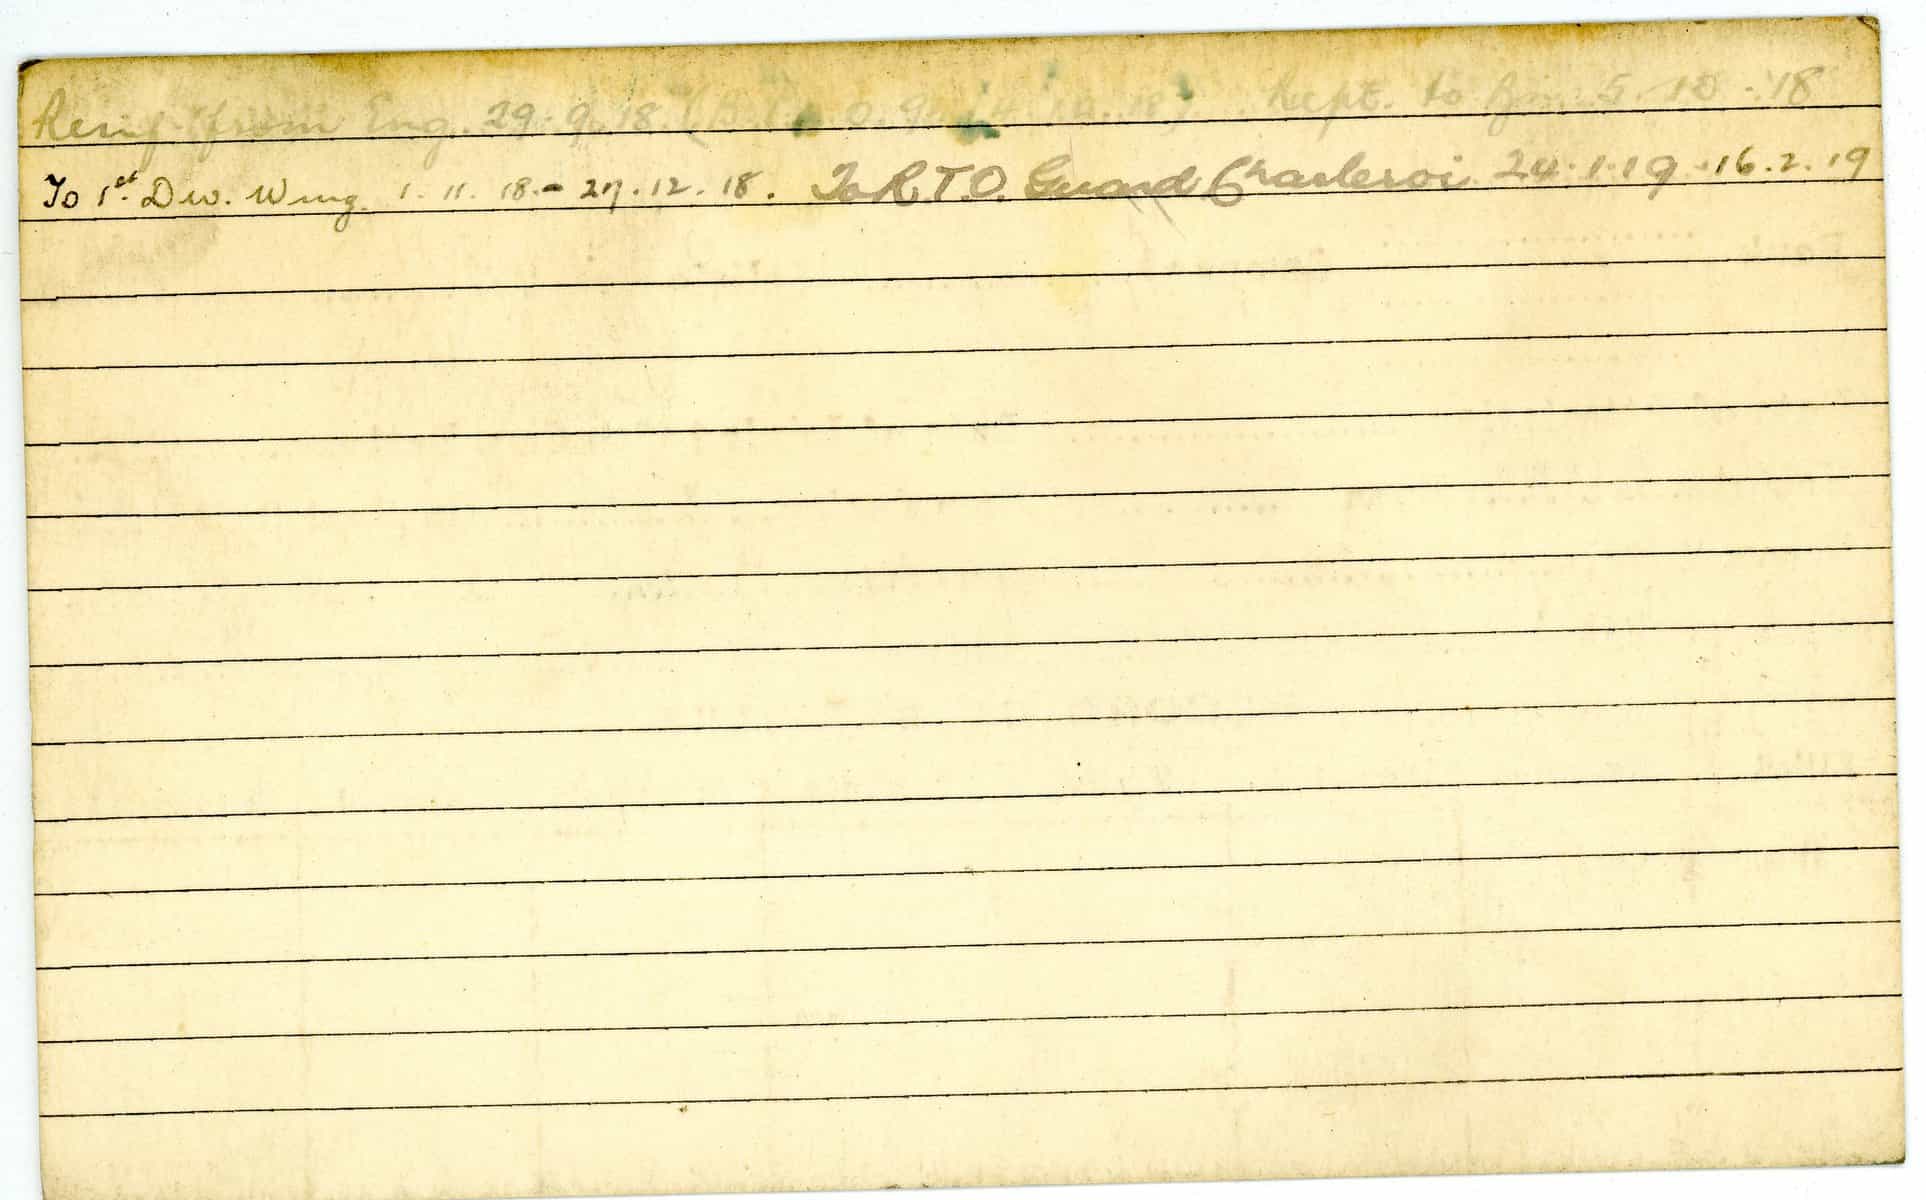 Reinf. from Eng. 29.9.18 (B.1. O. 9. 14.10.18) Rept. to Bn. 5.10.18
To 1st Div. Wing. 1.11.18.- 27.12.18. To R.T.O. Guard Charleroi 24.1.19 -16.2.19